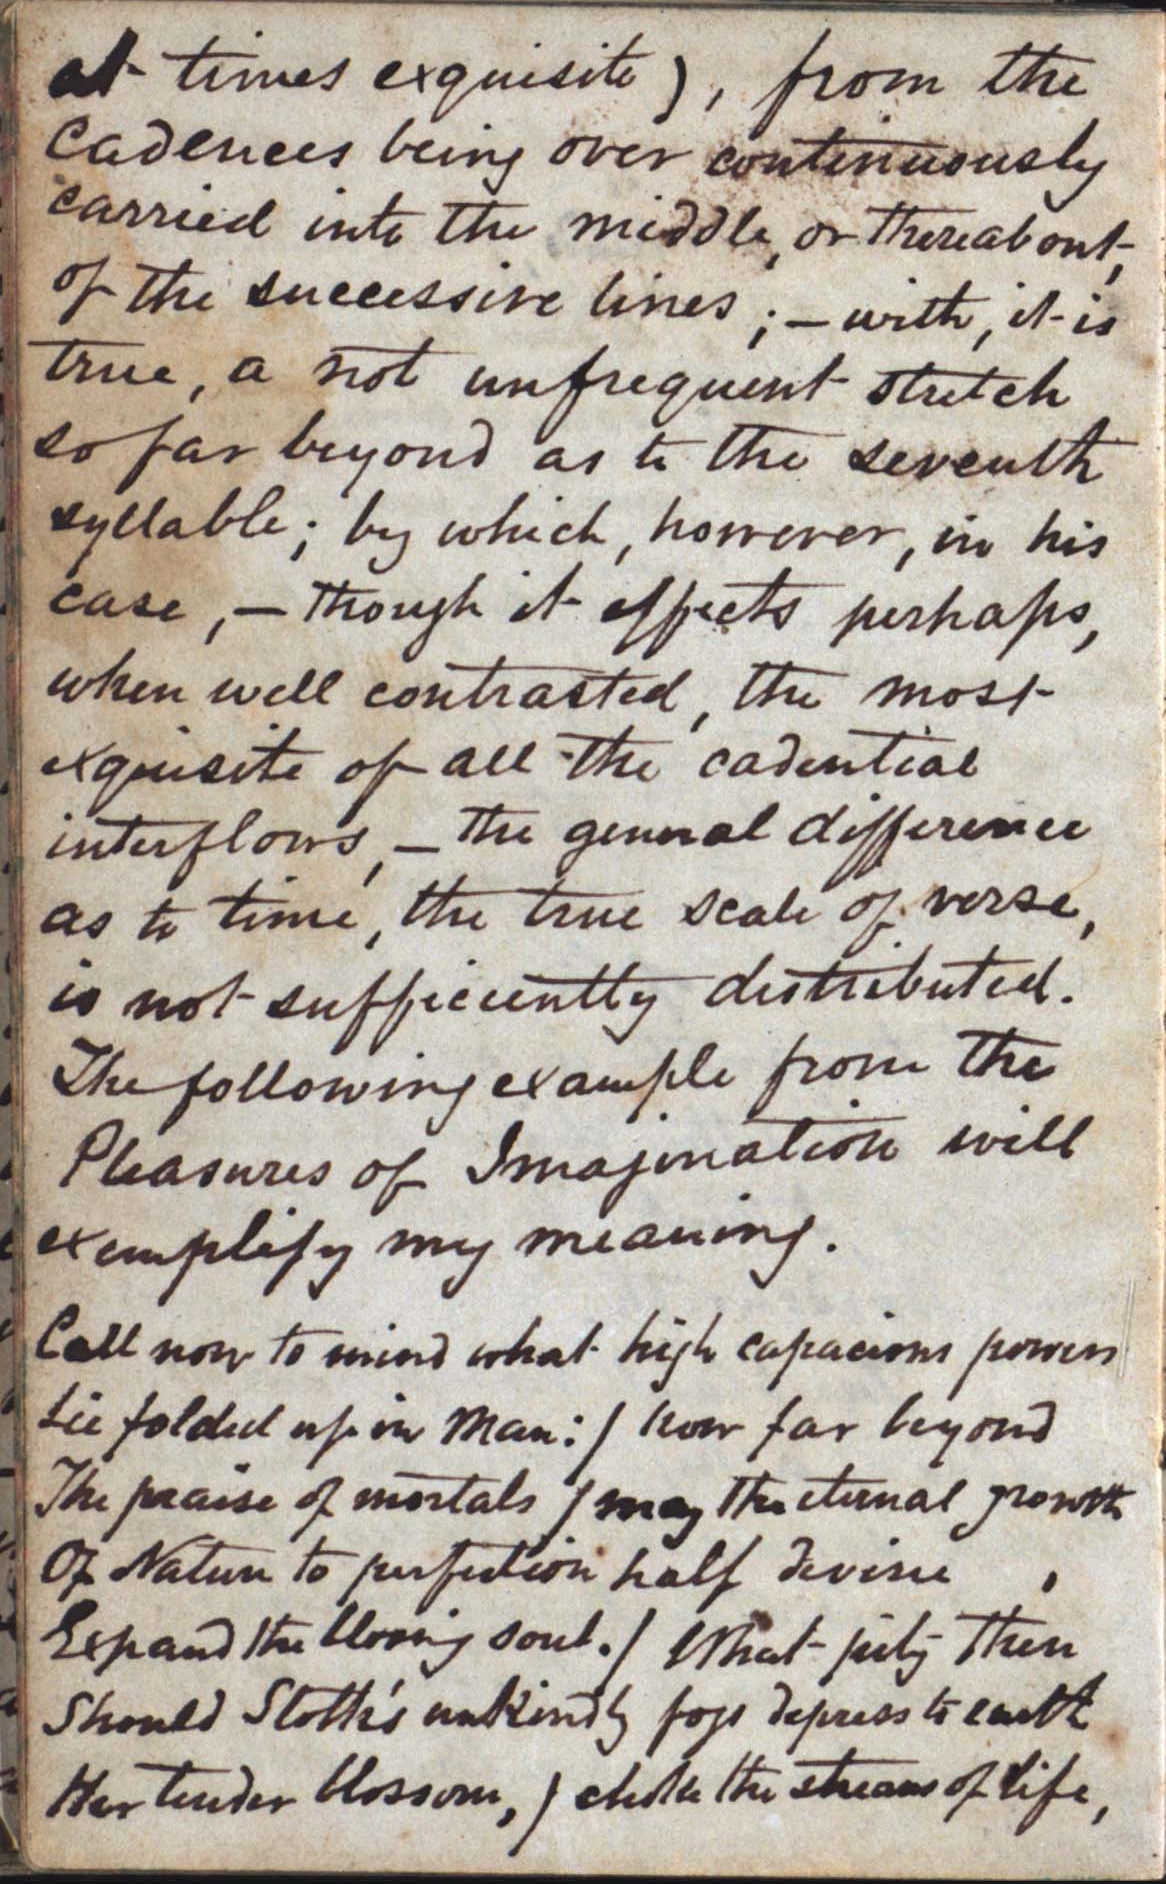 at times exquisite), from the
cadences being over continuously
carried into the middle, or thereabout,
of the successive lines; — with, it is
true, a not unfrequent stretch
so far beyond as to the seventh
syllable; by which, however, in his
case, — though it effects perhaps,
when well contrasted, the most
exquisite of all the cadential
interflows, — the general difference
as to time, the true scale of verse,
is not sufficiently distributed.
The following example from the
Pleasures of Imagination will
exemplify my meaning.
Call now to mind what high capacious powers
Lie folded up in Man: / how far beyond
The praise of mortals / may the eternal growth
Of Nature to perfection half divine,
Expand the blooming soul. / What pity then
Should Sloth's unkindly fogs depress to earth
Her tender blossom, / choke the streams of life,